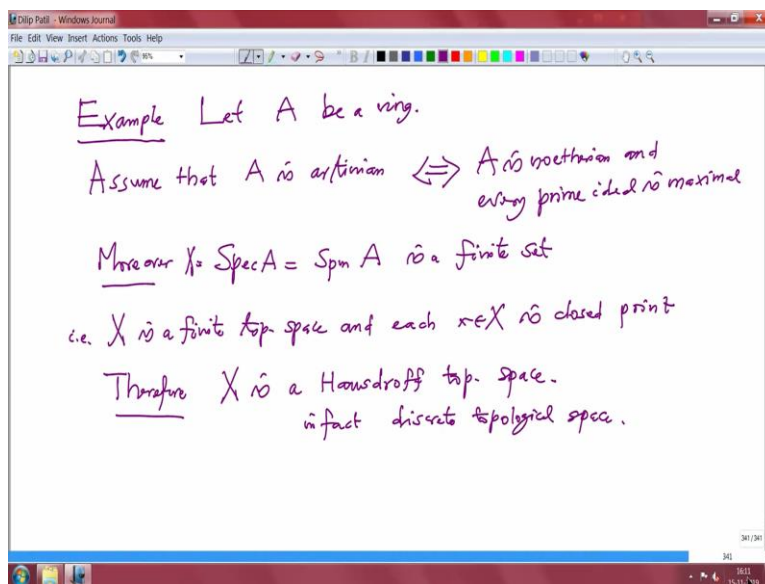 Dilip Patil - Windows Journal
File Edit View Insert Actions Tools Help
Example Let A be a ring.
Assume that A is artinian ⟺ A is noetherian and
every prime ideal is maximal
Moreover X = Spec A = Spm A is a finite set
i.e. X is a finite top. space and each x∈X is closed point
Therefore X is a Hausdroff top. space.
infact discrete topological space.
341/341
341
16:11